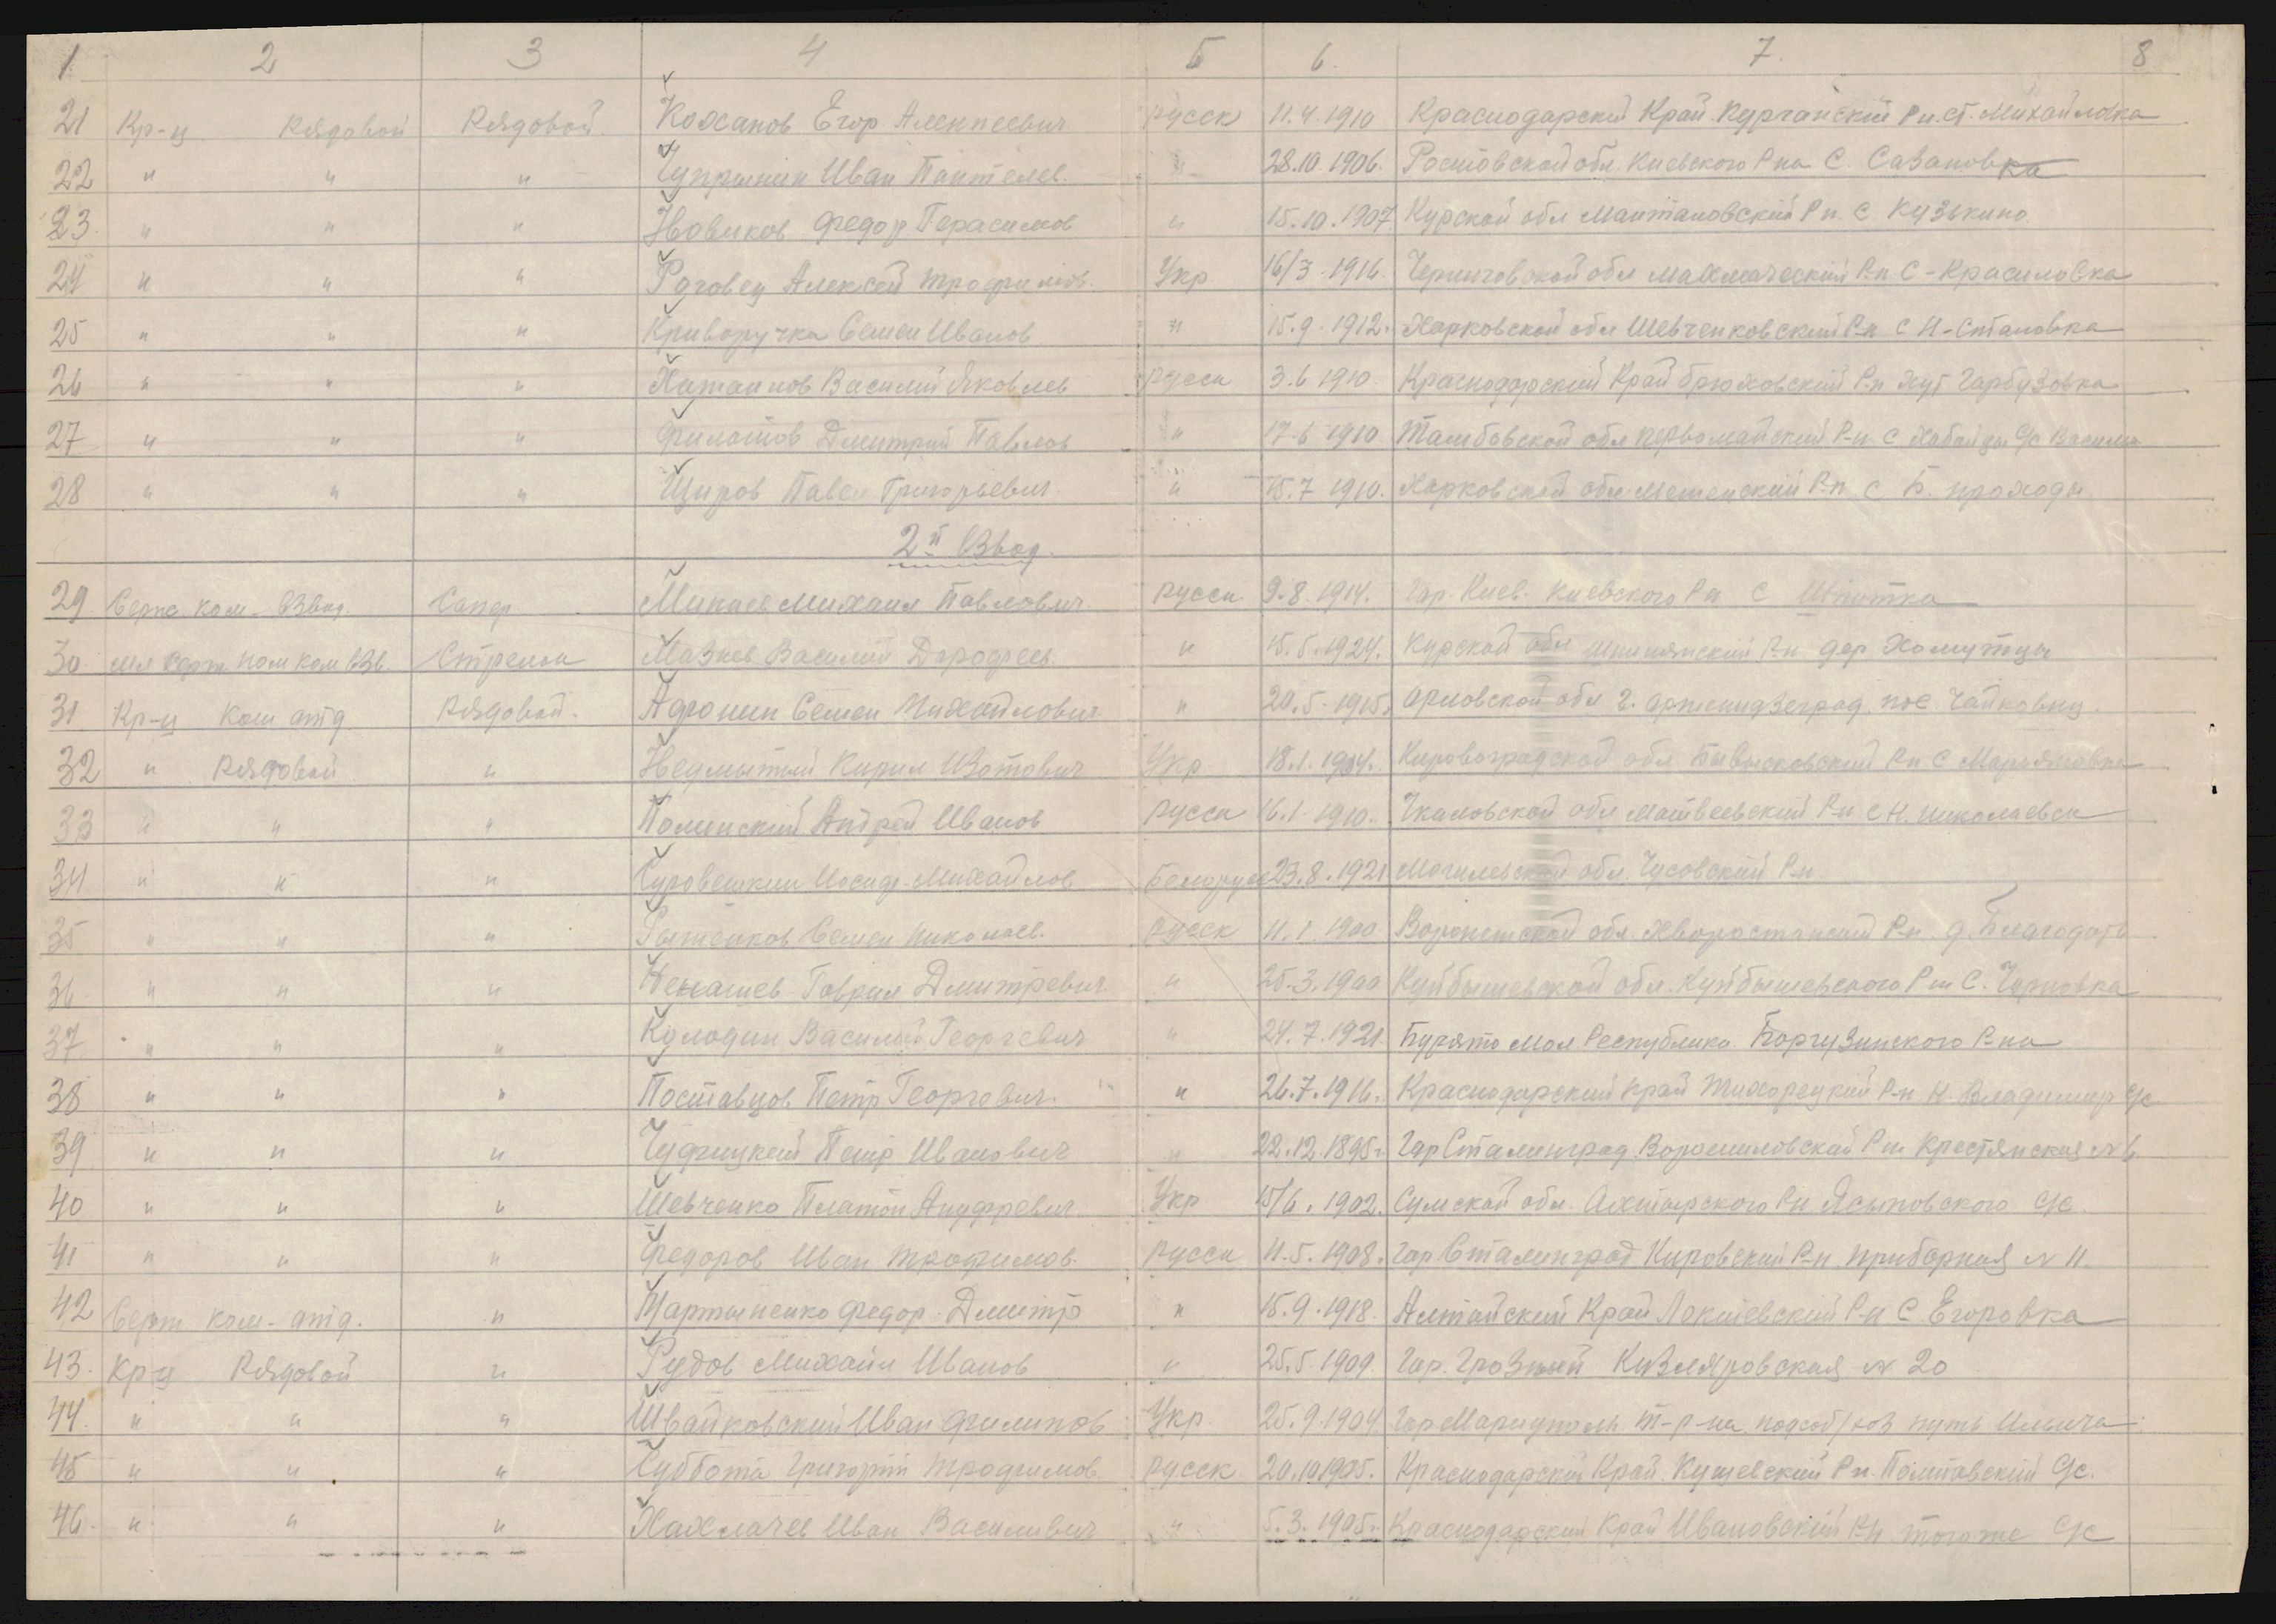 1 2 3 4 5 6. 7. 8
21 Кр-ц Рядовой Рядовой. Кожанов Егор Алекпеевич русск 11.4.1910 Краснодарский Край Курганский Р-н. ст. Михайловка
22 " " " Чупрынин Иван Пантелев. " 28.10.1906. Ростовской обл. Киевского Р-на С. Сазановка
23. " " " Новиков Федор Герасимов " 15.10.1907 Курской обл Мантаковский Р-н С. Кузькино.
24 " " " Роговец Алексей Трофимов. Укр 16/3-1916. Черниговской обл Р-н С-Красиловка
25 " " " Криворучка Семен Иванов " 15.9.1912. Харковской обл Шевченковский Р-н С Н-Становка
26 " " " Василий Яковлев русск 3.6 1910 Краснодарский Край брюховский Р-н хут Гарбузовка
27 " " " Филатов Дмитрий Павлов " 17.6 1910 Тамбовской обл первомайский Р-н С С/с
28 " " " Щиров Павел Григорьевич. " 15.7 1910. Харковской обл. Р-н С Б. проходы
2й Взвод.
29 Серж ком. Взвод. Сапер Минаев Михаил Павлович. русск. 9.8.1914. Гор. Киев. Киевского Р-н С
30 мл серж пом ком взв. Стрелок Мазнев Василий Дорофеев. " 15.5.1924. Курской обл Р-н дер Хомутцы
31 Кр-ц Ком отд Рядовой. Афонин Семен Михайлович " 20.5.1915. Орловской обл г. орженидзеград пос.
32 " Рядовой " Неумытый Кирил Изотович Укр. 18.1.1904. Кировоградской обл. Р-н С Марьяновка
33 " " " Поминский Андрей Иванов русск 16.1.1910. Чкаловской обл Матвеевский Р-н с Н. николаевск
34 " " " Иосиф Михайлов Белорусс 23.8.1921 Могилевской обл. Чусовский Р-н
35 " " " Семен Николаев. русск 11.1.1900 Воронежской обл. Хворостанский Р-н д. Благодать
36. " " " Ненашев Гаврил Дмитревич " 25.3.1900 Куйбышевской обл. Куйбышевского Р-н С. Чурновка
37 " " " Колодин Василий Георгевич " 24.7.1921. Бурято Мол Республика Боргузинского Р-на
38 " " " Поставцов Петр Георгевич. " 26.7.1916. Краснодарский край Тихорецкий Р-н Н. Владимир С/с
39 " " " Петр Иванович " 22.12.1895г. Гор Сталинград Ворошиловский Р-н Крестянская № 6
40 " " " Шевченко Платон Ануфревич. Укр 15/6.1902. Сумской обл. Ахтырского Р-н Ясыновского С/с.
41 " " " Федоров Иван Трофимов. русск 11.5.1908. Гор. Сталинград Кировский Р-н приборная № 11.
42 Серж ком-отд. " Мартыненко Федор Дмитр " 15.9.1918. Алтайский Край Локтевский Р-н С Егоровка
43. Кр-ц Рядовой " Рудов Михаил Иванов " 25.5.1909. Гор. Грозный Кизляровская № 20
44. " " " Швайковский Иван Филипов Укр. 25.9.1904 Гор Мариуполь т-р-на подсоб/хоз путь Ильича
45 " " " Суббота Григорий Трофимов русск 20.10 1905. Краснодарский Край. Кущевский Р-н. Полтавский С/с.
46. " " " Хахлачев Иван Василивич " 5.3.1905. Краснодарский Край Ивановский Р-н тогоже С/с